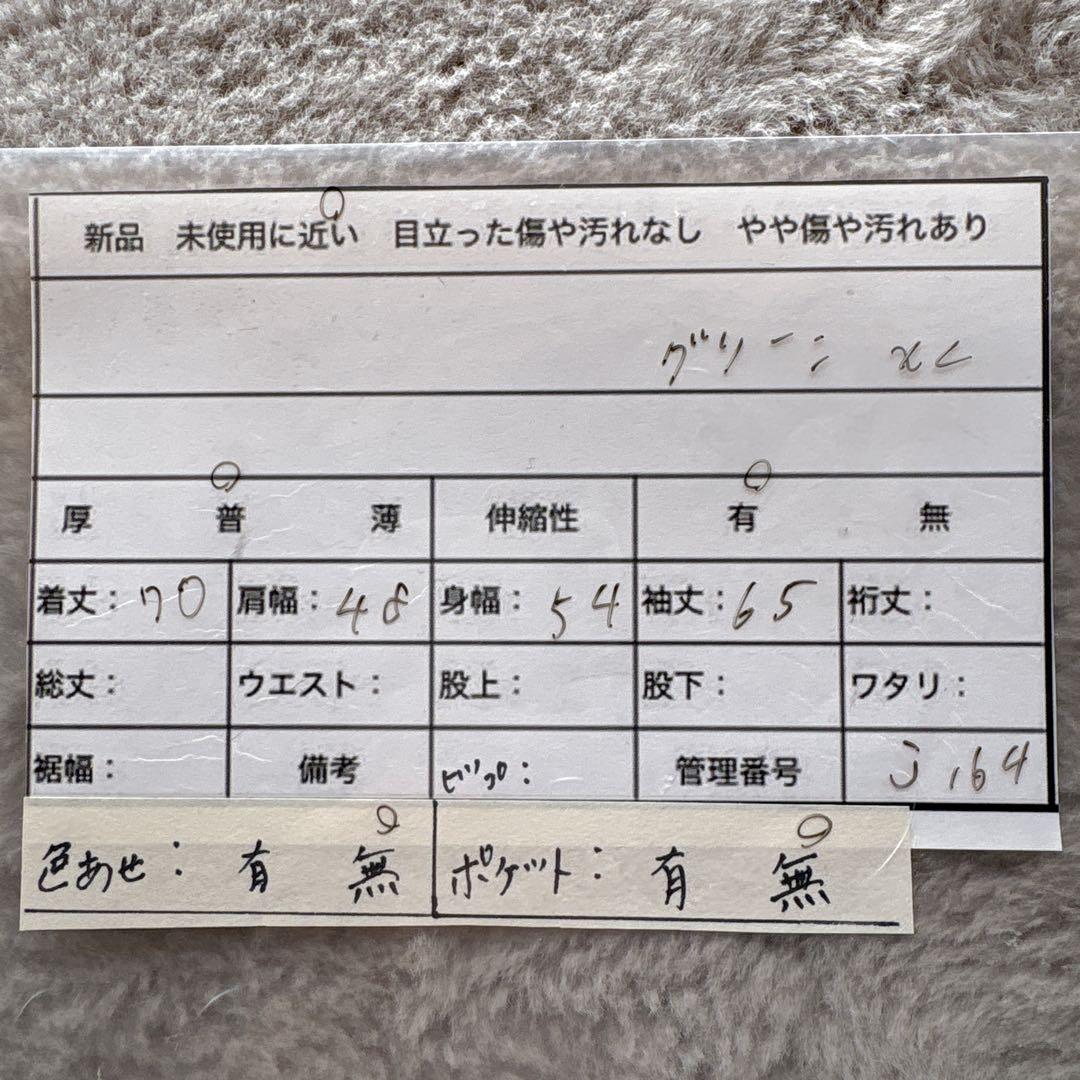 新品 未使用に近い 目立った傷や汚れなし やや傷や汚れあり
グリーン XL
厚 普 薄 伸縮性 有 無
着丈：70 肩幅：48 身幅：54 袖丈：65 裄丈：
総丈： ウエスト： 股上： 股下： ワタリ：
裾幅： 備考 ヒップ： 管理番号 J164
色あせ：有 無 ポケット：有 無